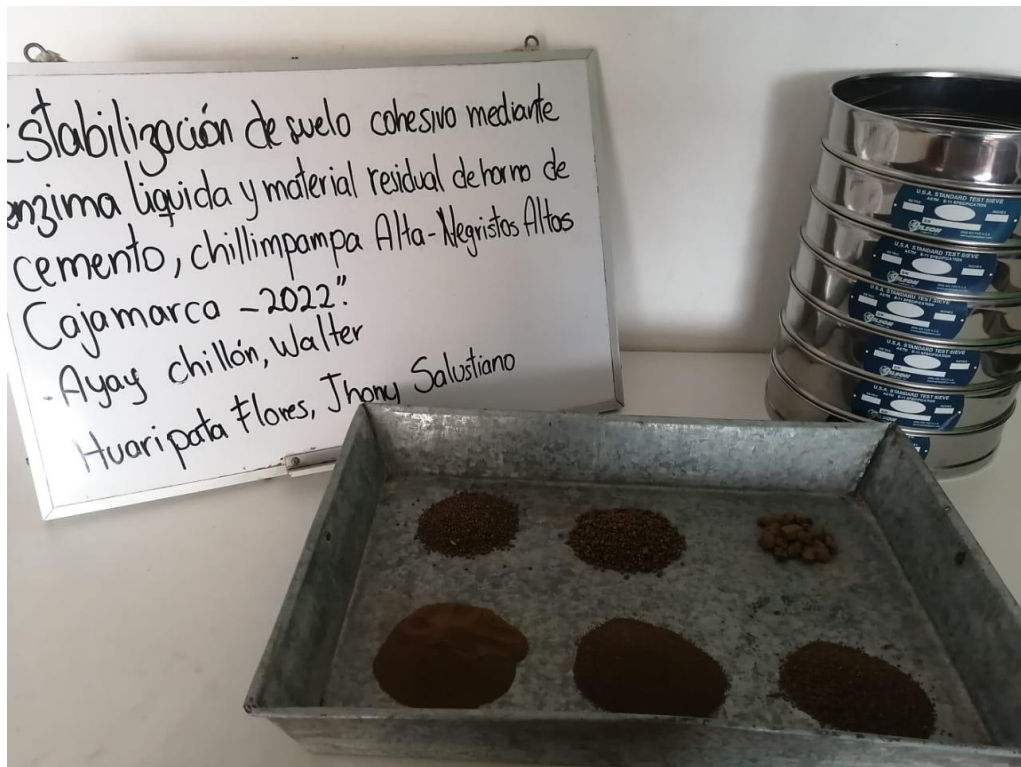 Estabilización de suelo cohesivo mediante
enzima liquida y material residual de horno de
cemento, chillimpampa Alta-Negritos Altos
Cajamarca -2022".
-Ayay chillón, Walter
Huaripata Flores, Jhony Salustiano
U.S.A. STANDARD TEST SIEVE
ASTM E-11 SPECIFICATION
GILSON
U.S.A. STANDARD TEST SIEVE
ASTM E-11 SPECIFICATION
GILSON
U.S.A. STANDARD TEST SIEVE
GILSON
U.S.A. STANDARD TEST SIEVE
GILSON
U.S.A. STANDARD TEST SIEVE
GILSON